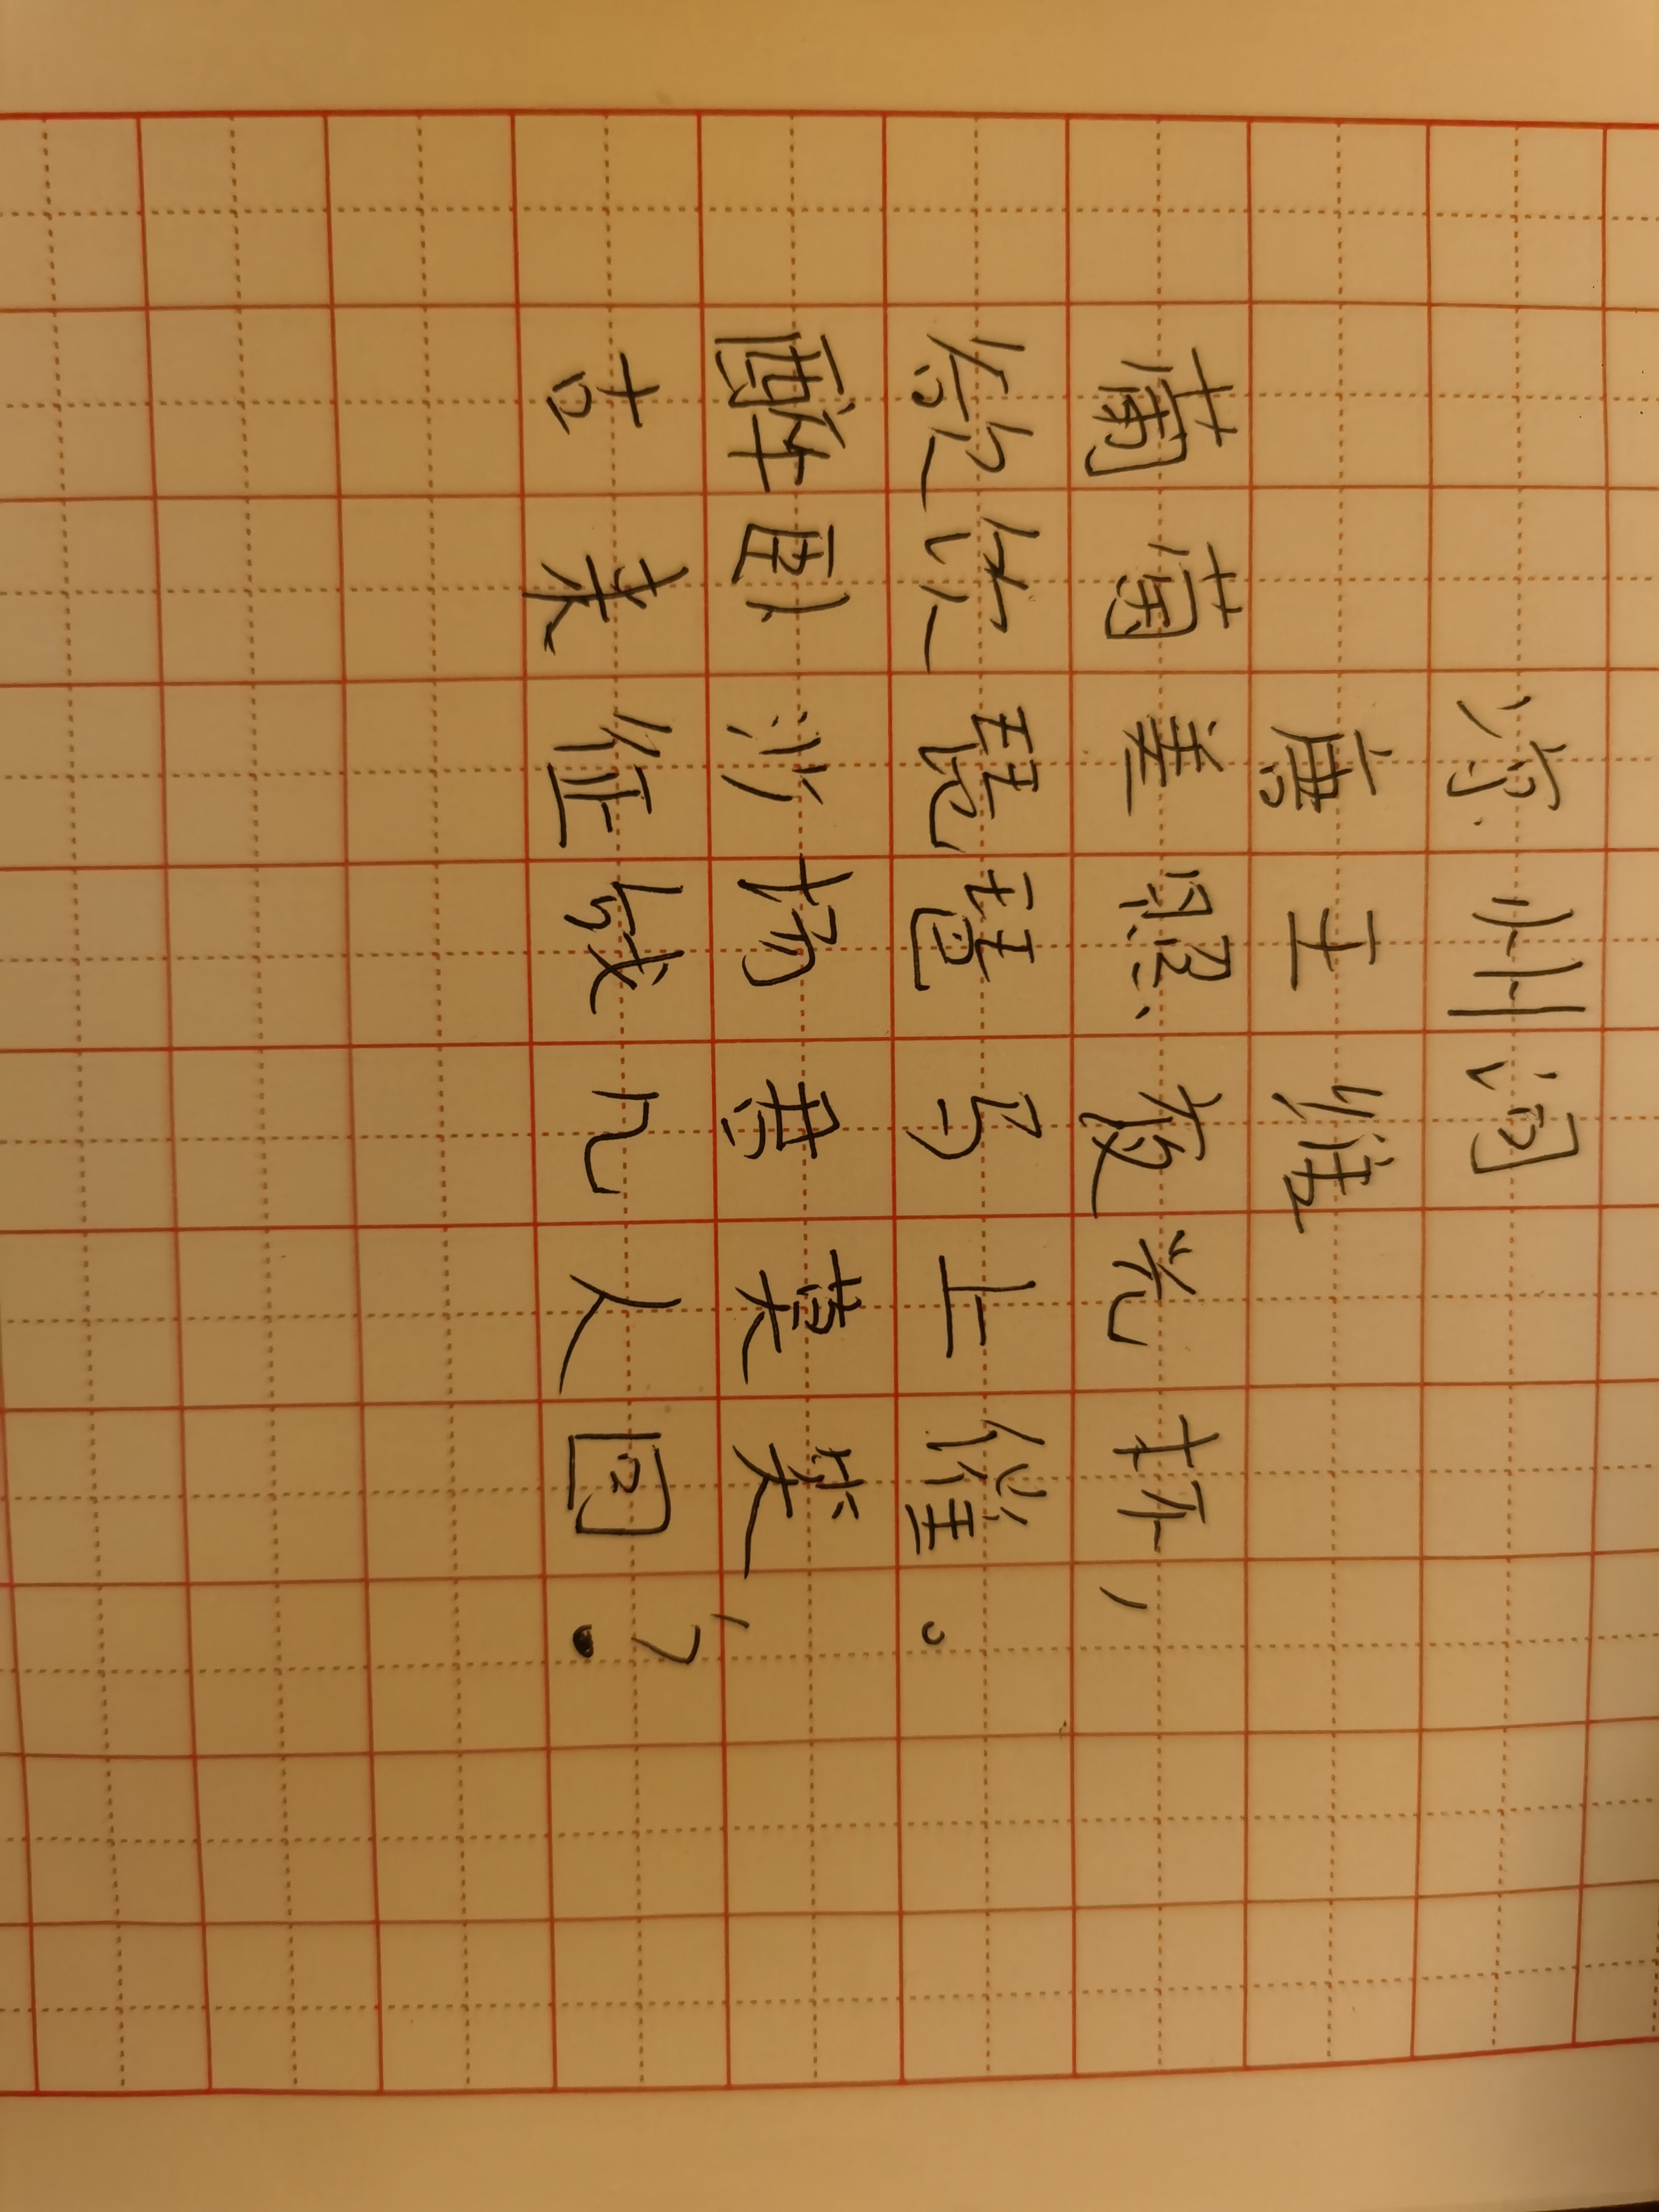 凉州词
唐王维
葡萄美照夜光杯，
欲饮琵琶马上催。
醉卧沙场君莫笑，
古来征战几人回？